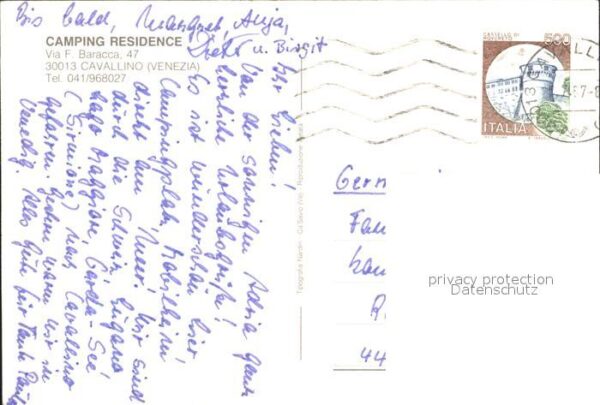 Bis bald, Margret, Anja,
Dieter u. Birgit
CAMPING RESIDENCE
Via F. Baracca, 47
30013 CAVALLINO (VENEZIA)
Tel. 041/968027
Ihr Lieben!
Von der sonnigen Adria ganz
herzliche Urlaubsgrüße!
Es ist wunderschön hier
Campingplatz, Mobilheim
direkt am Meer. Wir sind
durch die Schweiz, Lugano
Lago Maggiore, Garda-See
(Sirmione) nach Cavallino
gefahren. Gestern waren wir in
Venedig. Alles Gute für Tante
Tipografia Nardin
500
ITALIA
Fam
44
privacy protection
Datenschutz